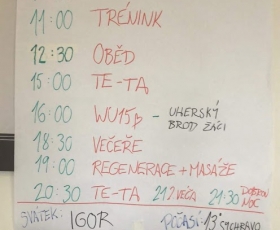 11:00 TRÉNINK
12:30 OBĚD
15:00 TE-TA
16:00 WU15 - UHERSKÝ
BROD ŽÁCI
18:30 VEČEŘE
19:00 REGENERACE + MASÁŽE
20:30 TE-TA 21:30 DOBROU
NOC
SVÁTEK: IGOR POČASÍ: 13°